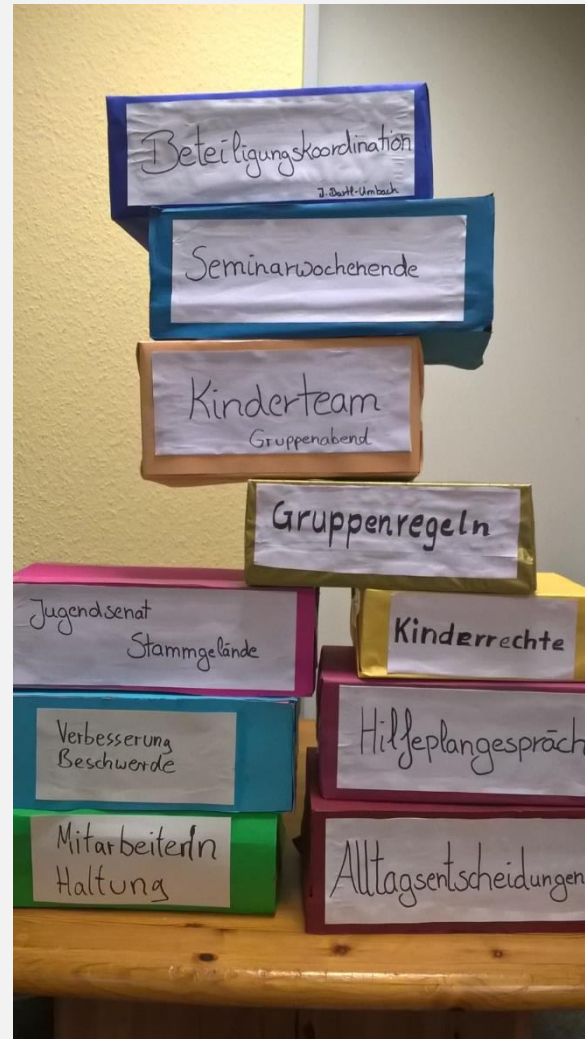 Beteiligungskoordination
J. Bartl-Umbach
Seminarwochenende
Kinderteam
Gruppenabend
Gruppenregeln
Jugendsenat
Stammgelände
Kinderrechte
Verbesserung
Beschwerde
Hilfeplangespräch
MitarbeiterIn
Haltung
Alltagsentscheidungen